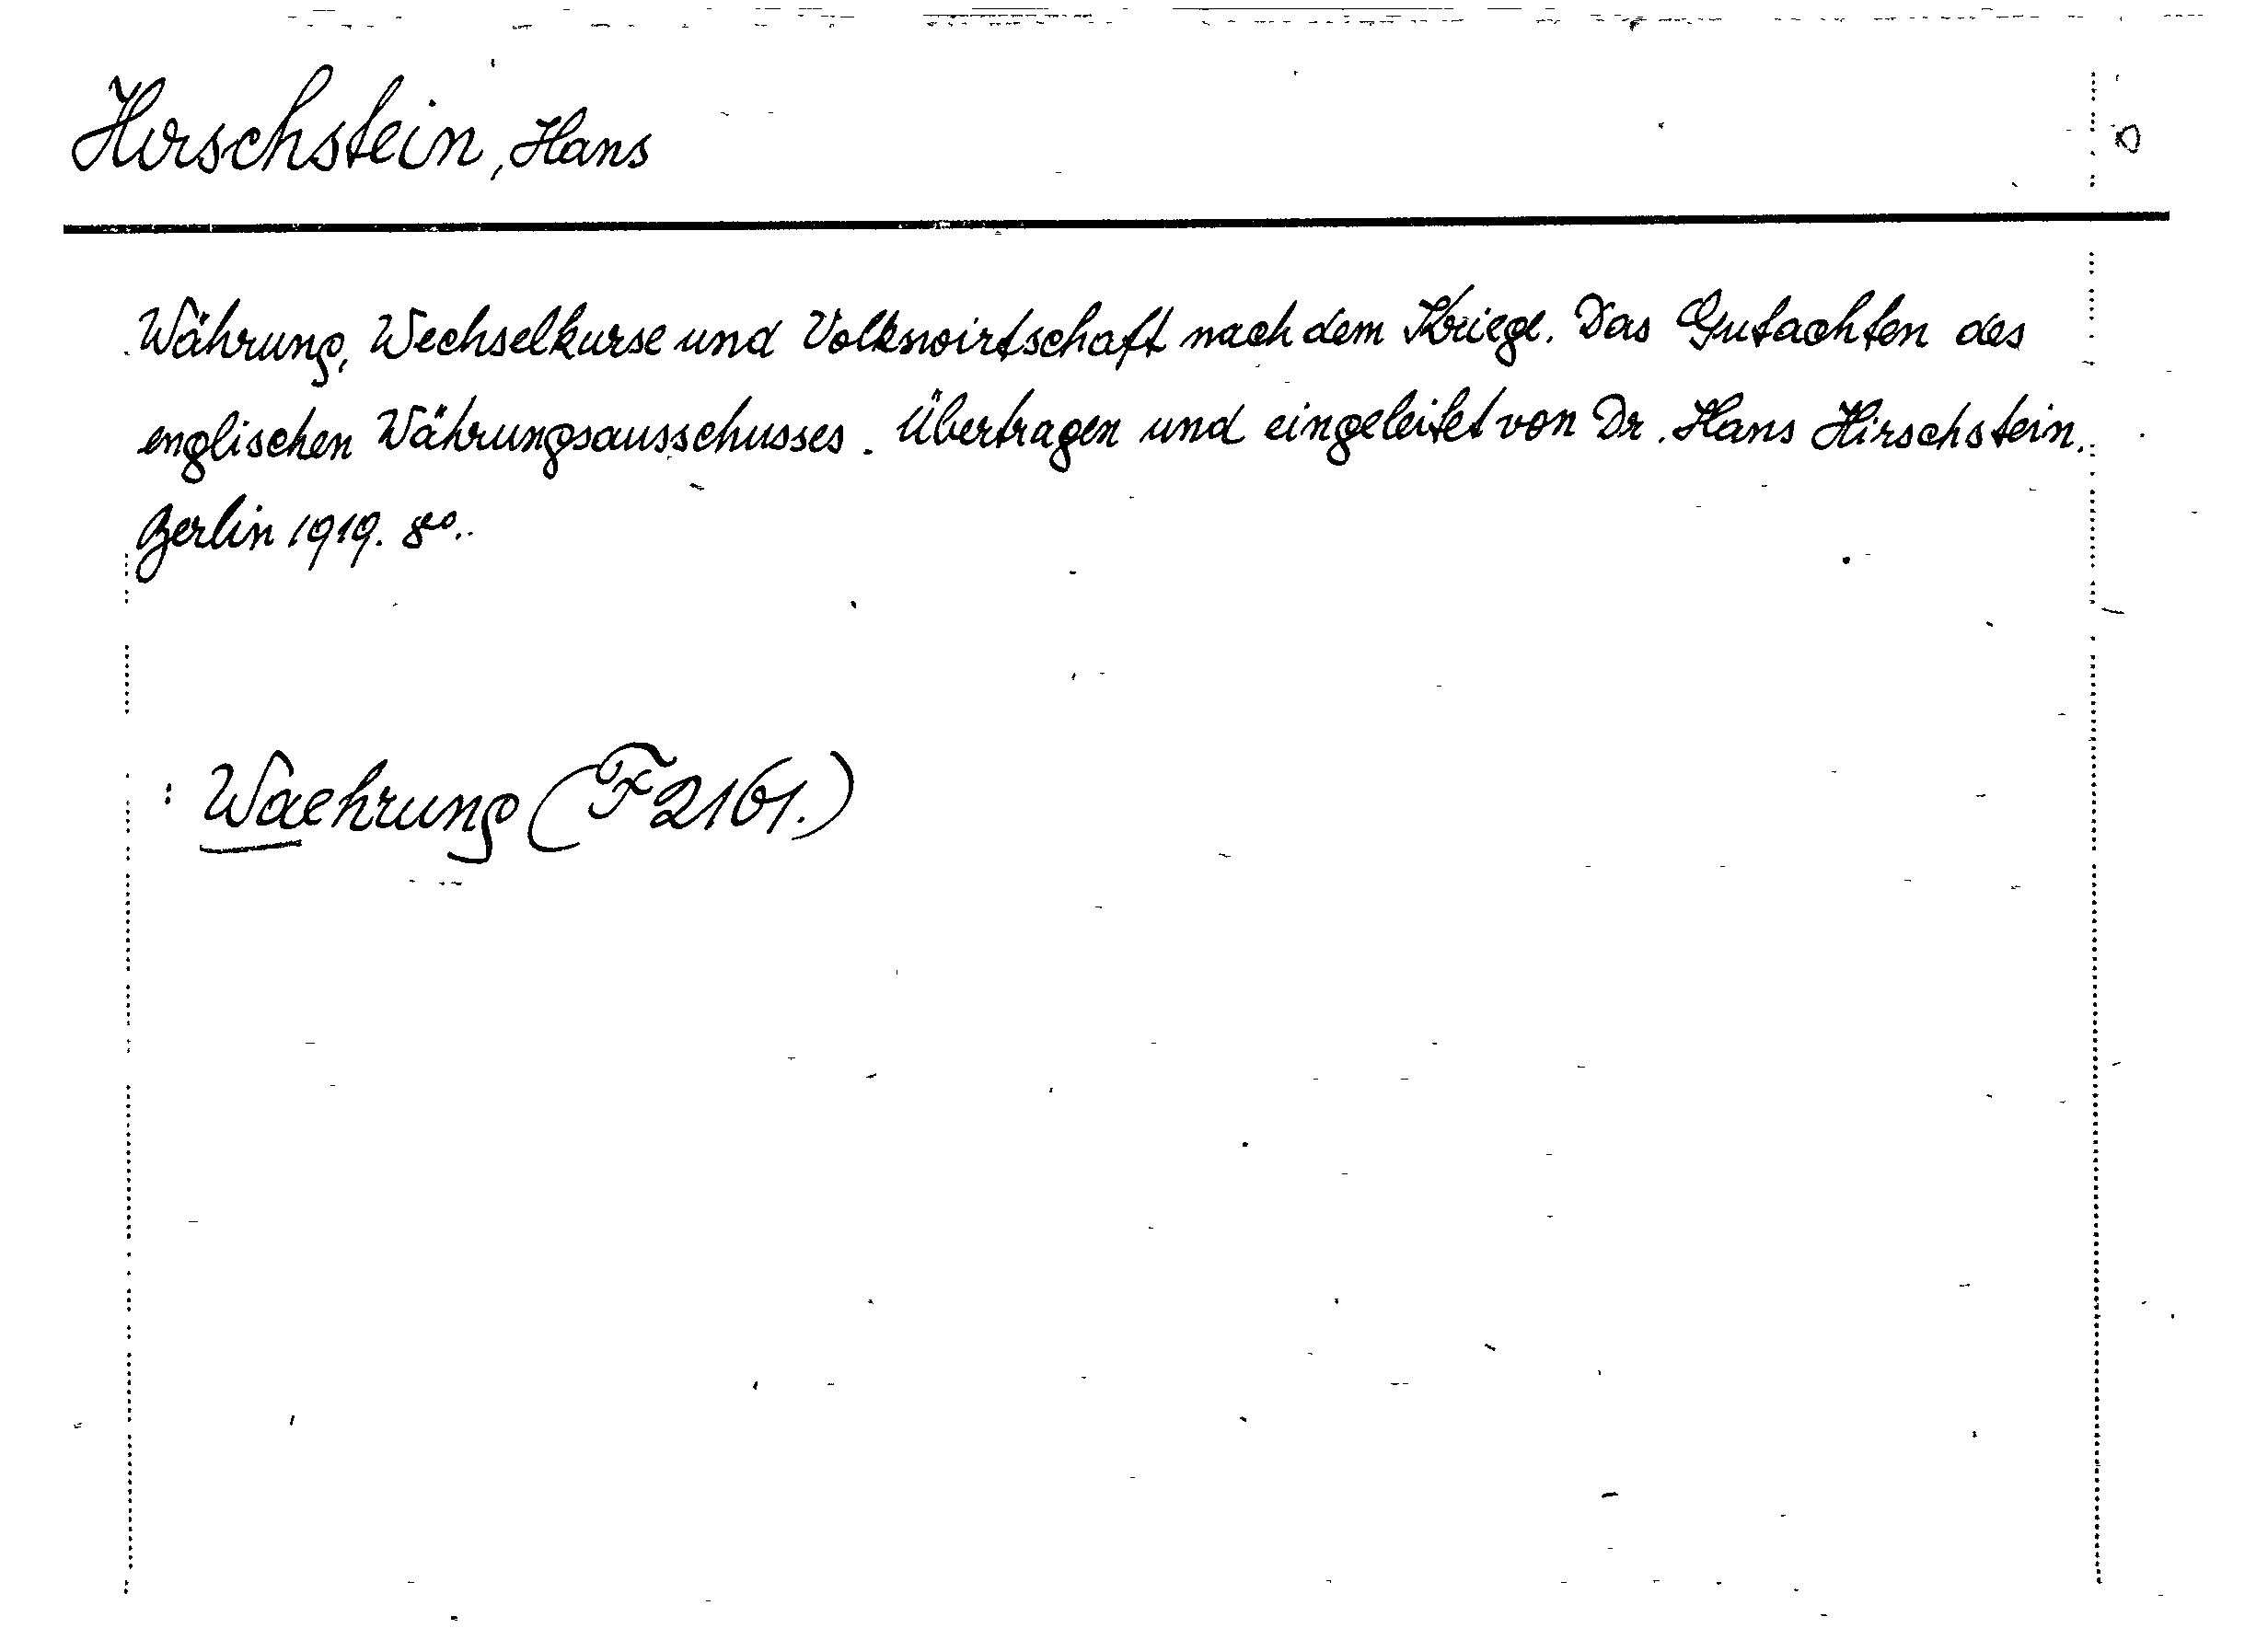 Hirschstein, Hans
Währung, Wechselkurse und Volkswirtschaft nach dem Kriege. Das Gutachten des
englischen Währungsausschusses. Übertragen und eingeleitet von Dr. Hans Hirschstein.
Berlin 1919. 8º.
: Waehrung (F 2161.)